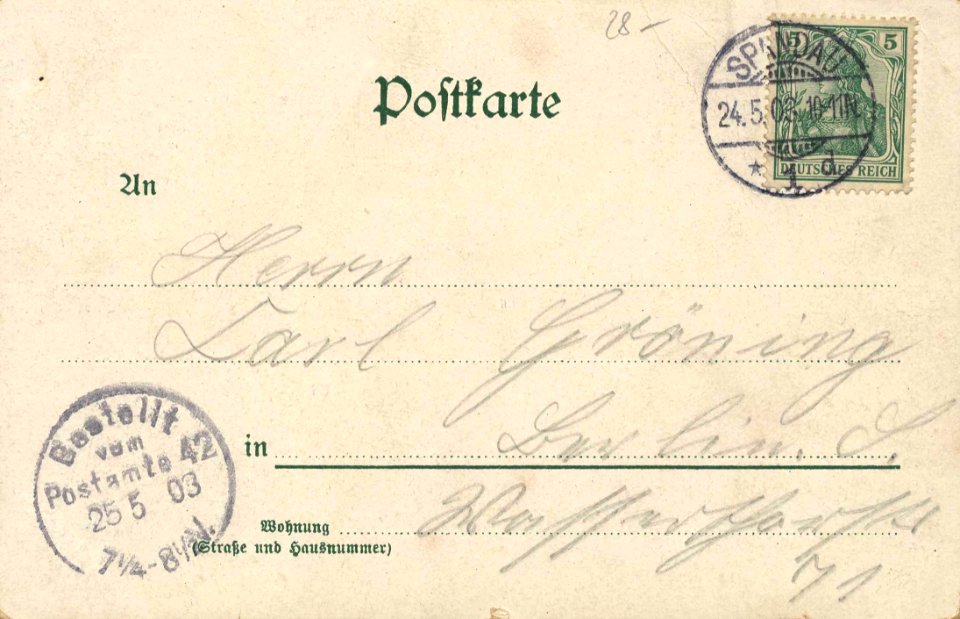 28 –
Postkarte
5 5
SPANDAU
24.5.03. 10-11N.
* 1 d
DEUTSCHES REICH
An
Herrn
Carl Gröning
in Berlin. S.
Wohnung
(Straße und Hausnummer)
71
Bestellt
vom
Postamte 42
25 5 03
7¼-8½N.